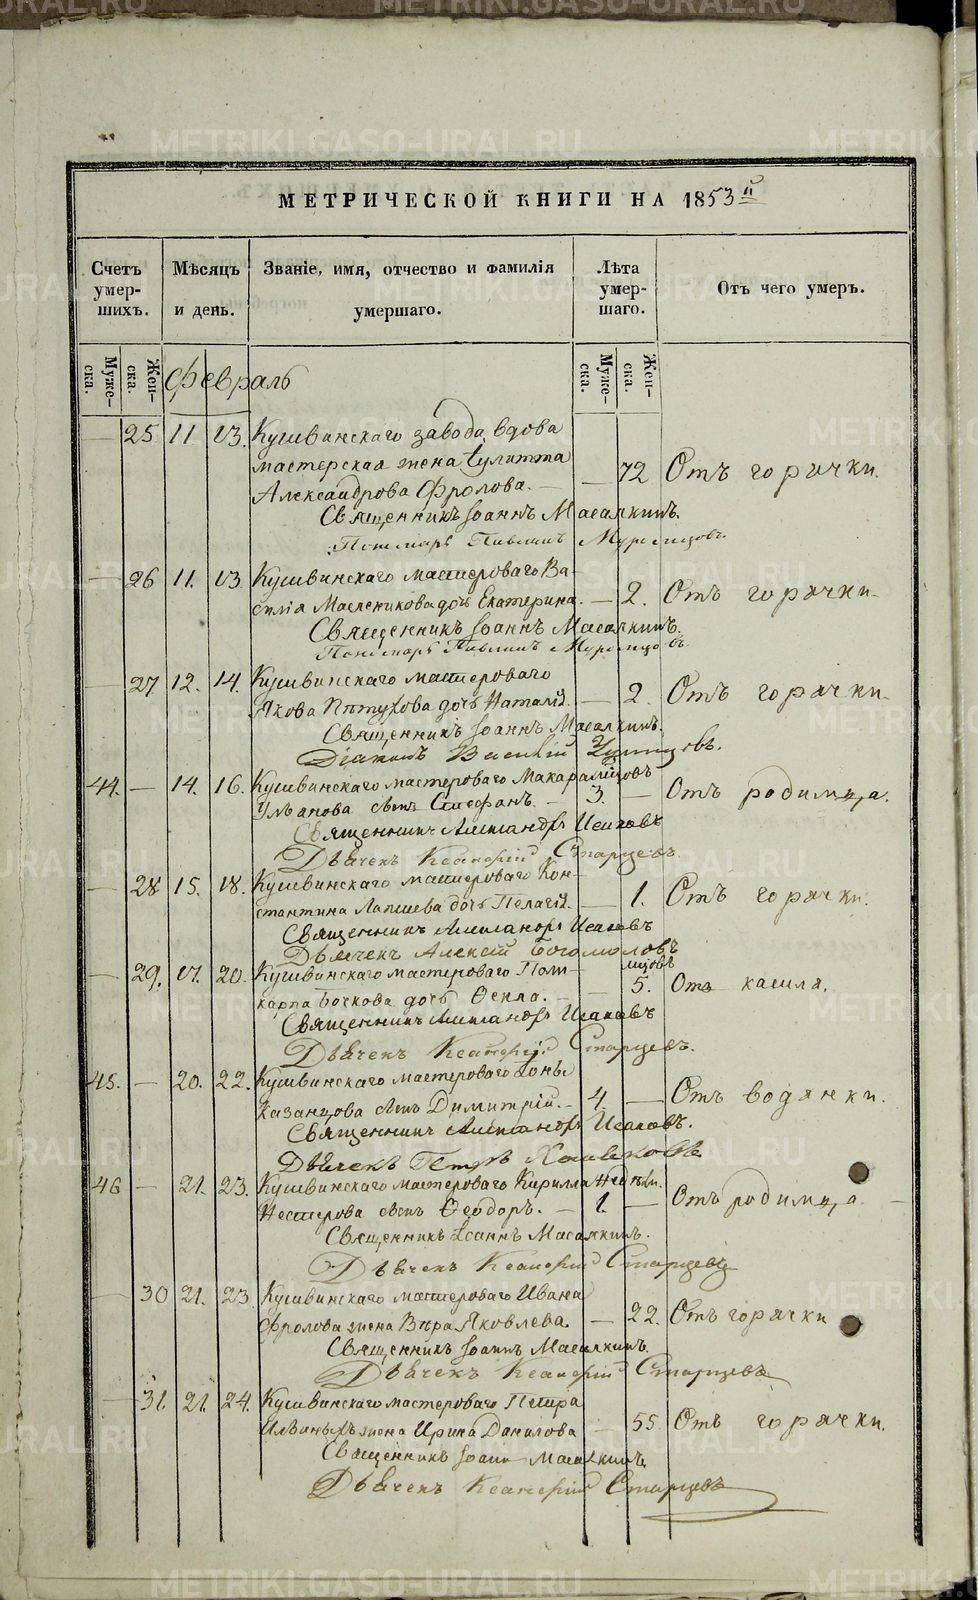 METRIKI.GASO-URAL.RU
МЕТРИЧЕСКОЙ КНИГИ НА 1853й
Счетъ умер- шихъ.
Мѣсяцъ и день.
Званіе, имя, отчество и фамилія умершаго.
Лѣта умер- шаго.
Отъ чего умеръ.
Муже- ска. Жен- ска. Февраль Муже- ска. Жен- ска.
— 25 11 13. Кушвинскаго завода вдова
мастерская жена Іулитта — 72 Отъ горячки.
Александрова Фролова. —
Священникъ Іоаннъ Масалкинъ.
Пономарь
— 26 11. 13 Кушвинскаго мастероваго Ва-
силія Маслениковадочь Екатерина. — 2. Отъ горячки.
Священникъ Іоаннъ Масалкинъ.
Пономарь
— 27 12. 14. Кушвинскаго мастероваго
Якова Пѣтухова дочь Наталія. — 2. Отъ горячки.
Священникъ Іоаннъ Масалкинъ.
Діаконъ Василій
44. — 14. 16. Кушвинскаго мастероваго Макара мѣсяцовъ
Ульянова сынъ Стефанъ. — 3. — Отъ родимца.
Священникъ Александръ Исаковъ
Дьячекъ Старцевъ.
— 28 15. 18. Кушвинскаго мастероваго Кон-
стантина Лапшева дочь Пелагія. — 1. Отъ горячки.
Священникъ Александръ Исаковъ
Дьячекъ Алексій Богомоловъ
— 29. 17. 20. Кушвинскаго мастероваго Поли- мѣсяцовъ
карпа Бочкова дочь Ѳекла. — — 5. Отъ кашля.
Священникъ Александръ Исаковъ
Дьячекъ Старцевъ.
45. — 20. 22. Кушвинскаго мастероваго Іоны
Казанцова сынъ Димитрій. — 4 — Отъ водянки.
Священникъ Александръ Исаковъ.
Дьячекъ Петръ
46 — 21. 23. Кушвинскаго мастероваго Кирилла недѣли.
Нестерова сынъ Ѳеодоръ. — 1. — Отъ родимца. —
Священникъ Іоаннъ Масалкинъ.
Дьячекъ Старцевъ
— 30 21. 23 Кушвинскаго мастероваго Ивана
Фролова жена Вѣра Яковлева. — 22. Отъ горячки
Священникъ Іоаннъ Масалкинъ.
Дьячекъ Старцевъ
— 31. 21. 24. Кушвинскаго мастероваго Петра
Ильиныхъ жена Ирина Данилова — 55. Отъ горячки.
Священникъ Іоаннъ Масалкинъ
Дьячекъ Старцевъ